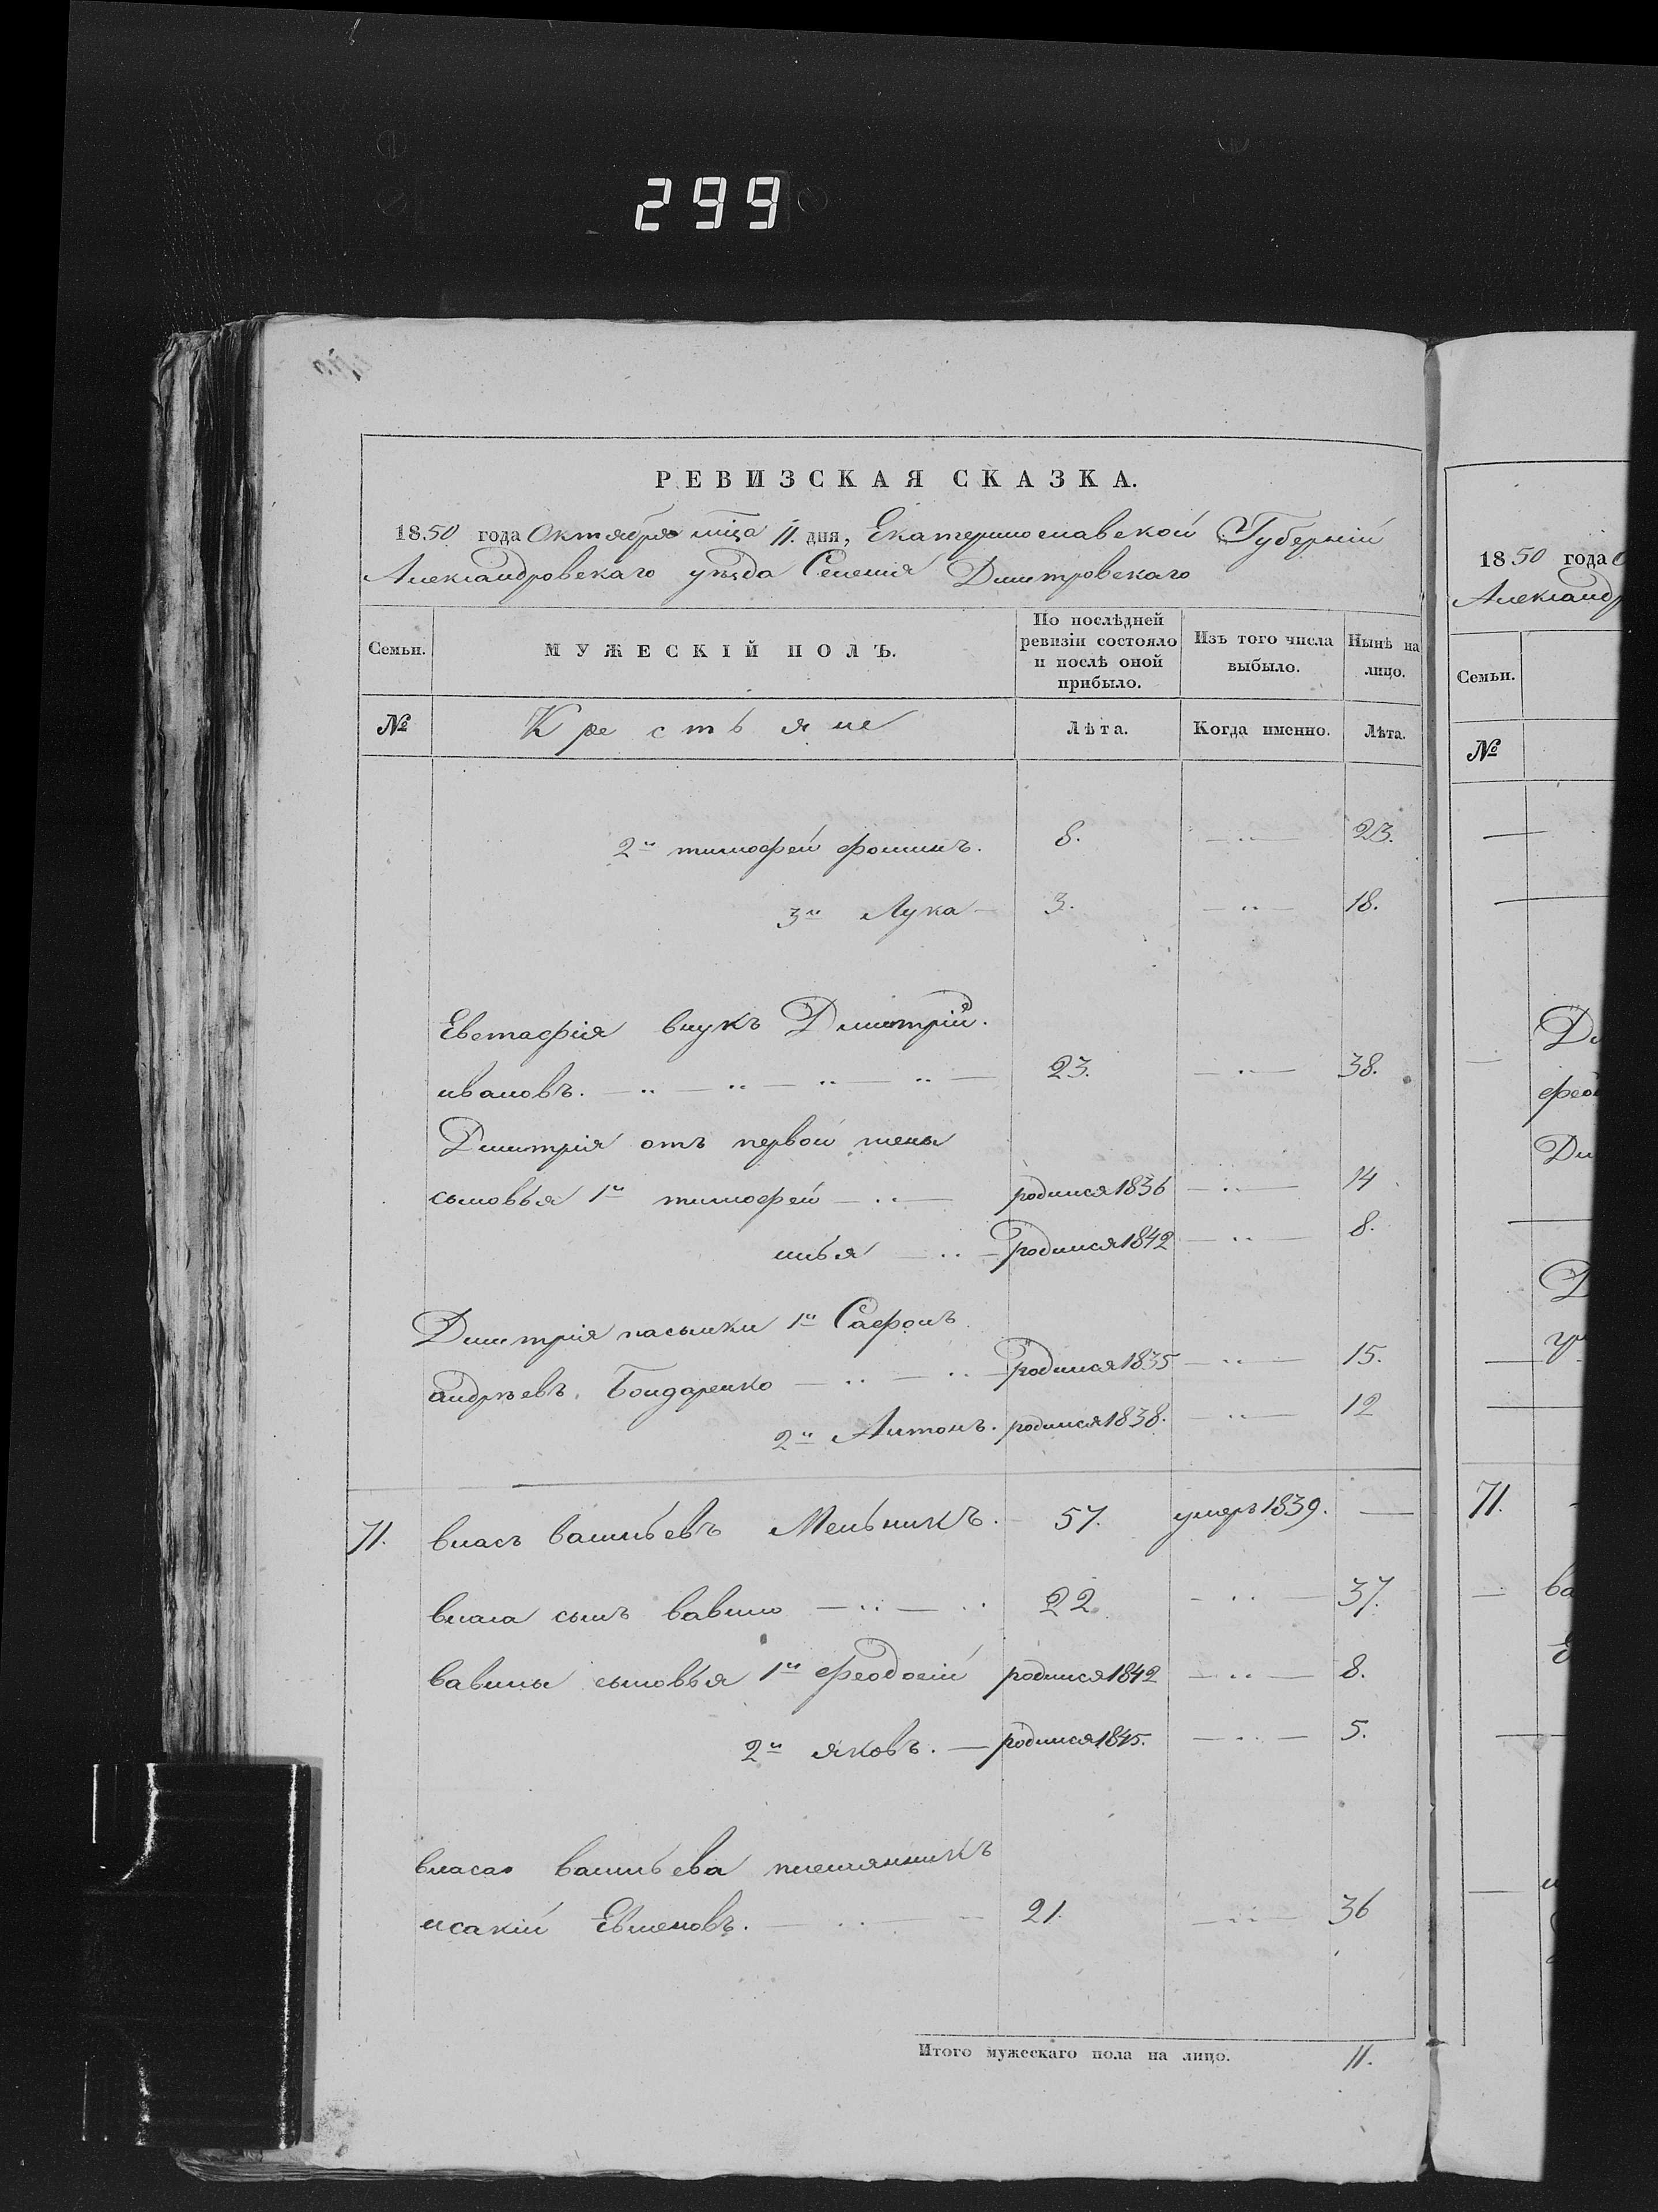 299
РЕВИЗСКАЯ СКАЗКА.
1850 года Октября мѣсца 11. дня, Екатеринославской Губерніи
Александровскаго уѣзда Селенія Дмитровскаго
Семьи. МУЖЕСКІЙ ПОЛЪ. По послѣдней ревизіи состояло и послѣ оной прибыло. Изъ того числа выбыло. Нынѣ на лицо.
№ Крестьяне Лѣта. Когда именно. Лѣта.
2й тимофей фоминъ. 8. — „ — 23.
3й Лука — 3. — „ — 18.
Евстафія внукъ Димитрій.
ивановъ. — „ — „ — „ — „ — 23. — „ — 38.
Димитрія отъ первой жены
сыновья 1й тимофей — „ — родился 1836 — „ — 14
илья — „ — родился 1842 — „ — 8.
Димитрія пасынки 1й Сафонъ
андрѣевъ. Бондаренко — „ — „ — родился 1835 — „ — 15.
2й Антонъ. родился 1838. — „ — 12
71. власъ васильевъ Мельникъ. — 57. умеръ 1839. —
власа сынъ вавило — „ — „ 22. — „ — 37.
вавилы сыновья 1й феодосій родился 1842 — „ — 8.
2й яковъ. — родился 1845. — „ — 5.
власа васильева племянникъ
исакій Евменовъ. — „ — 21. — „ — 36
Итого мужескаго пола на лицо. 11.
1850 года
Александр
Семьи.
№
71.